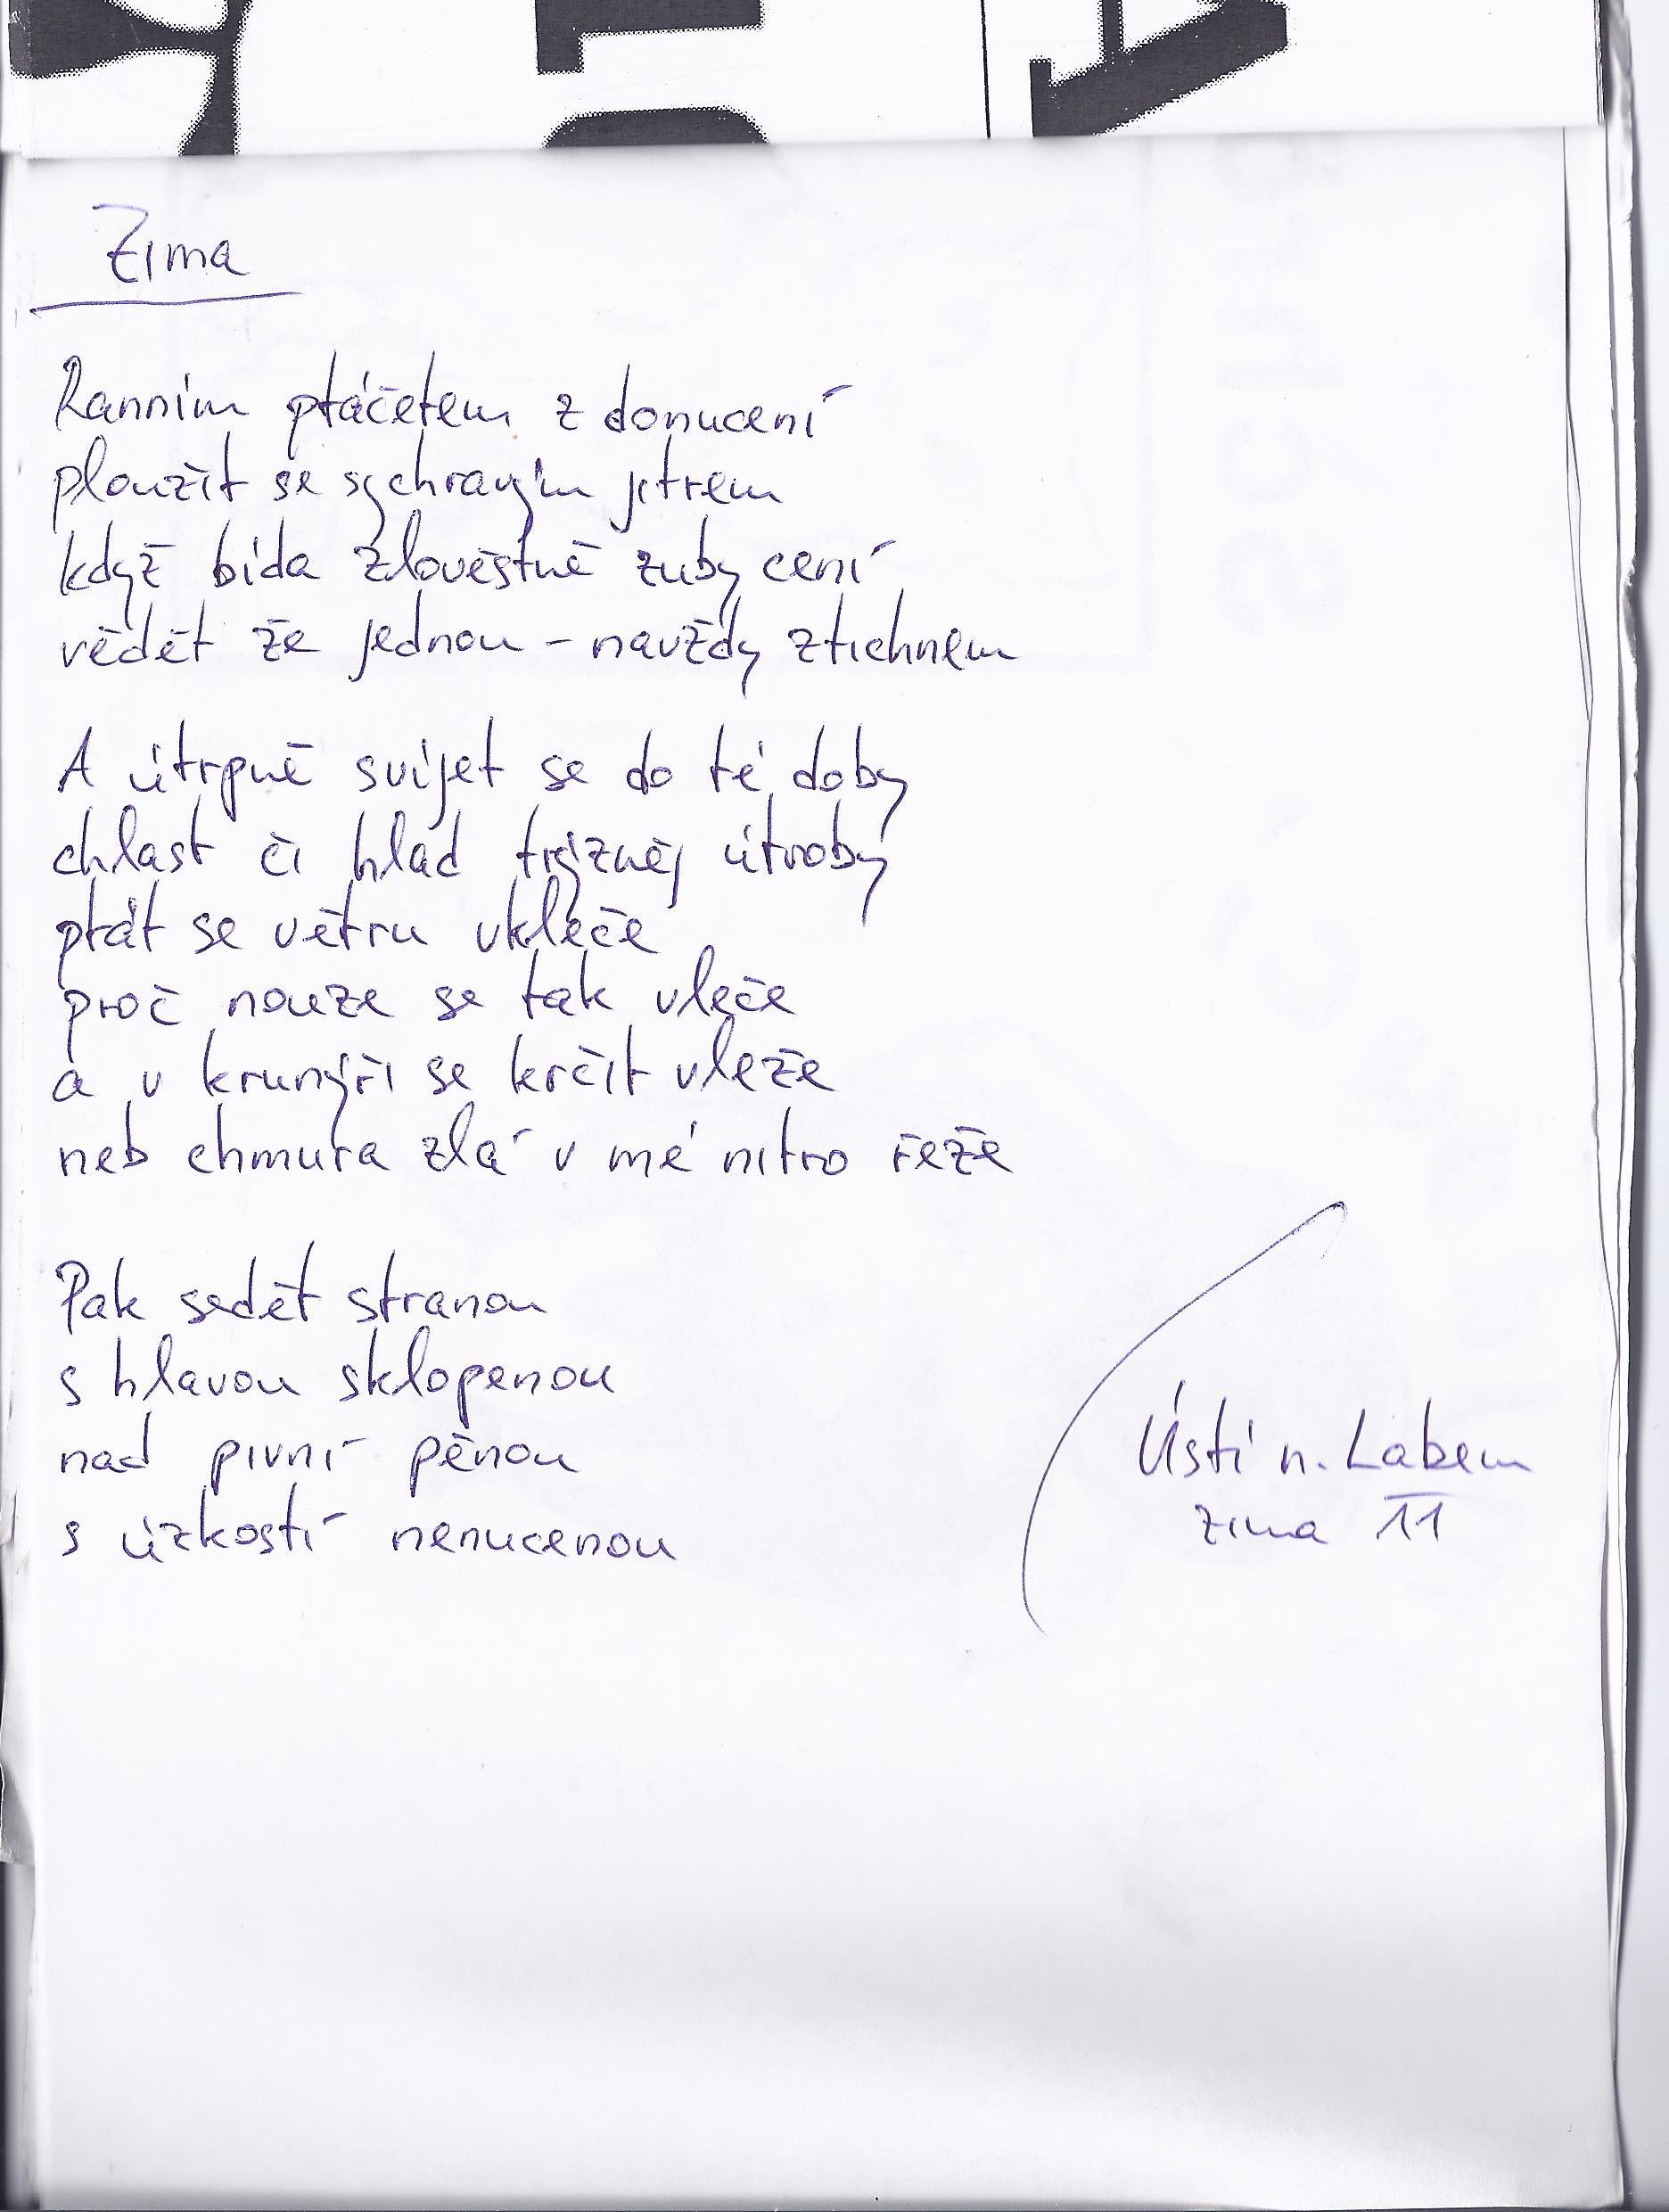 Zima
Ranním ptáčetem z donucení
ploužit se sychravým jitrem
když bída zlověstně zuby cení
vědět že jednou – navždy ztichnem
A útrpně svíjet se do té doby
chlast či hlad trýzněj útroby
ptát se větru vkleče
proč nouze se tak vleče
a v krunýři se krčit vleže
neb chmura zlá v mé nitro řeže
Pak sedět stranou
s hlavou sklopenou
nad pivní pěnou
s úzkostí nenucenou
Ústí n. Labem
zima 11